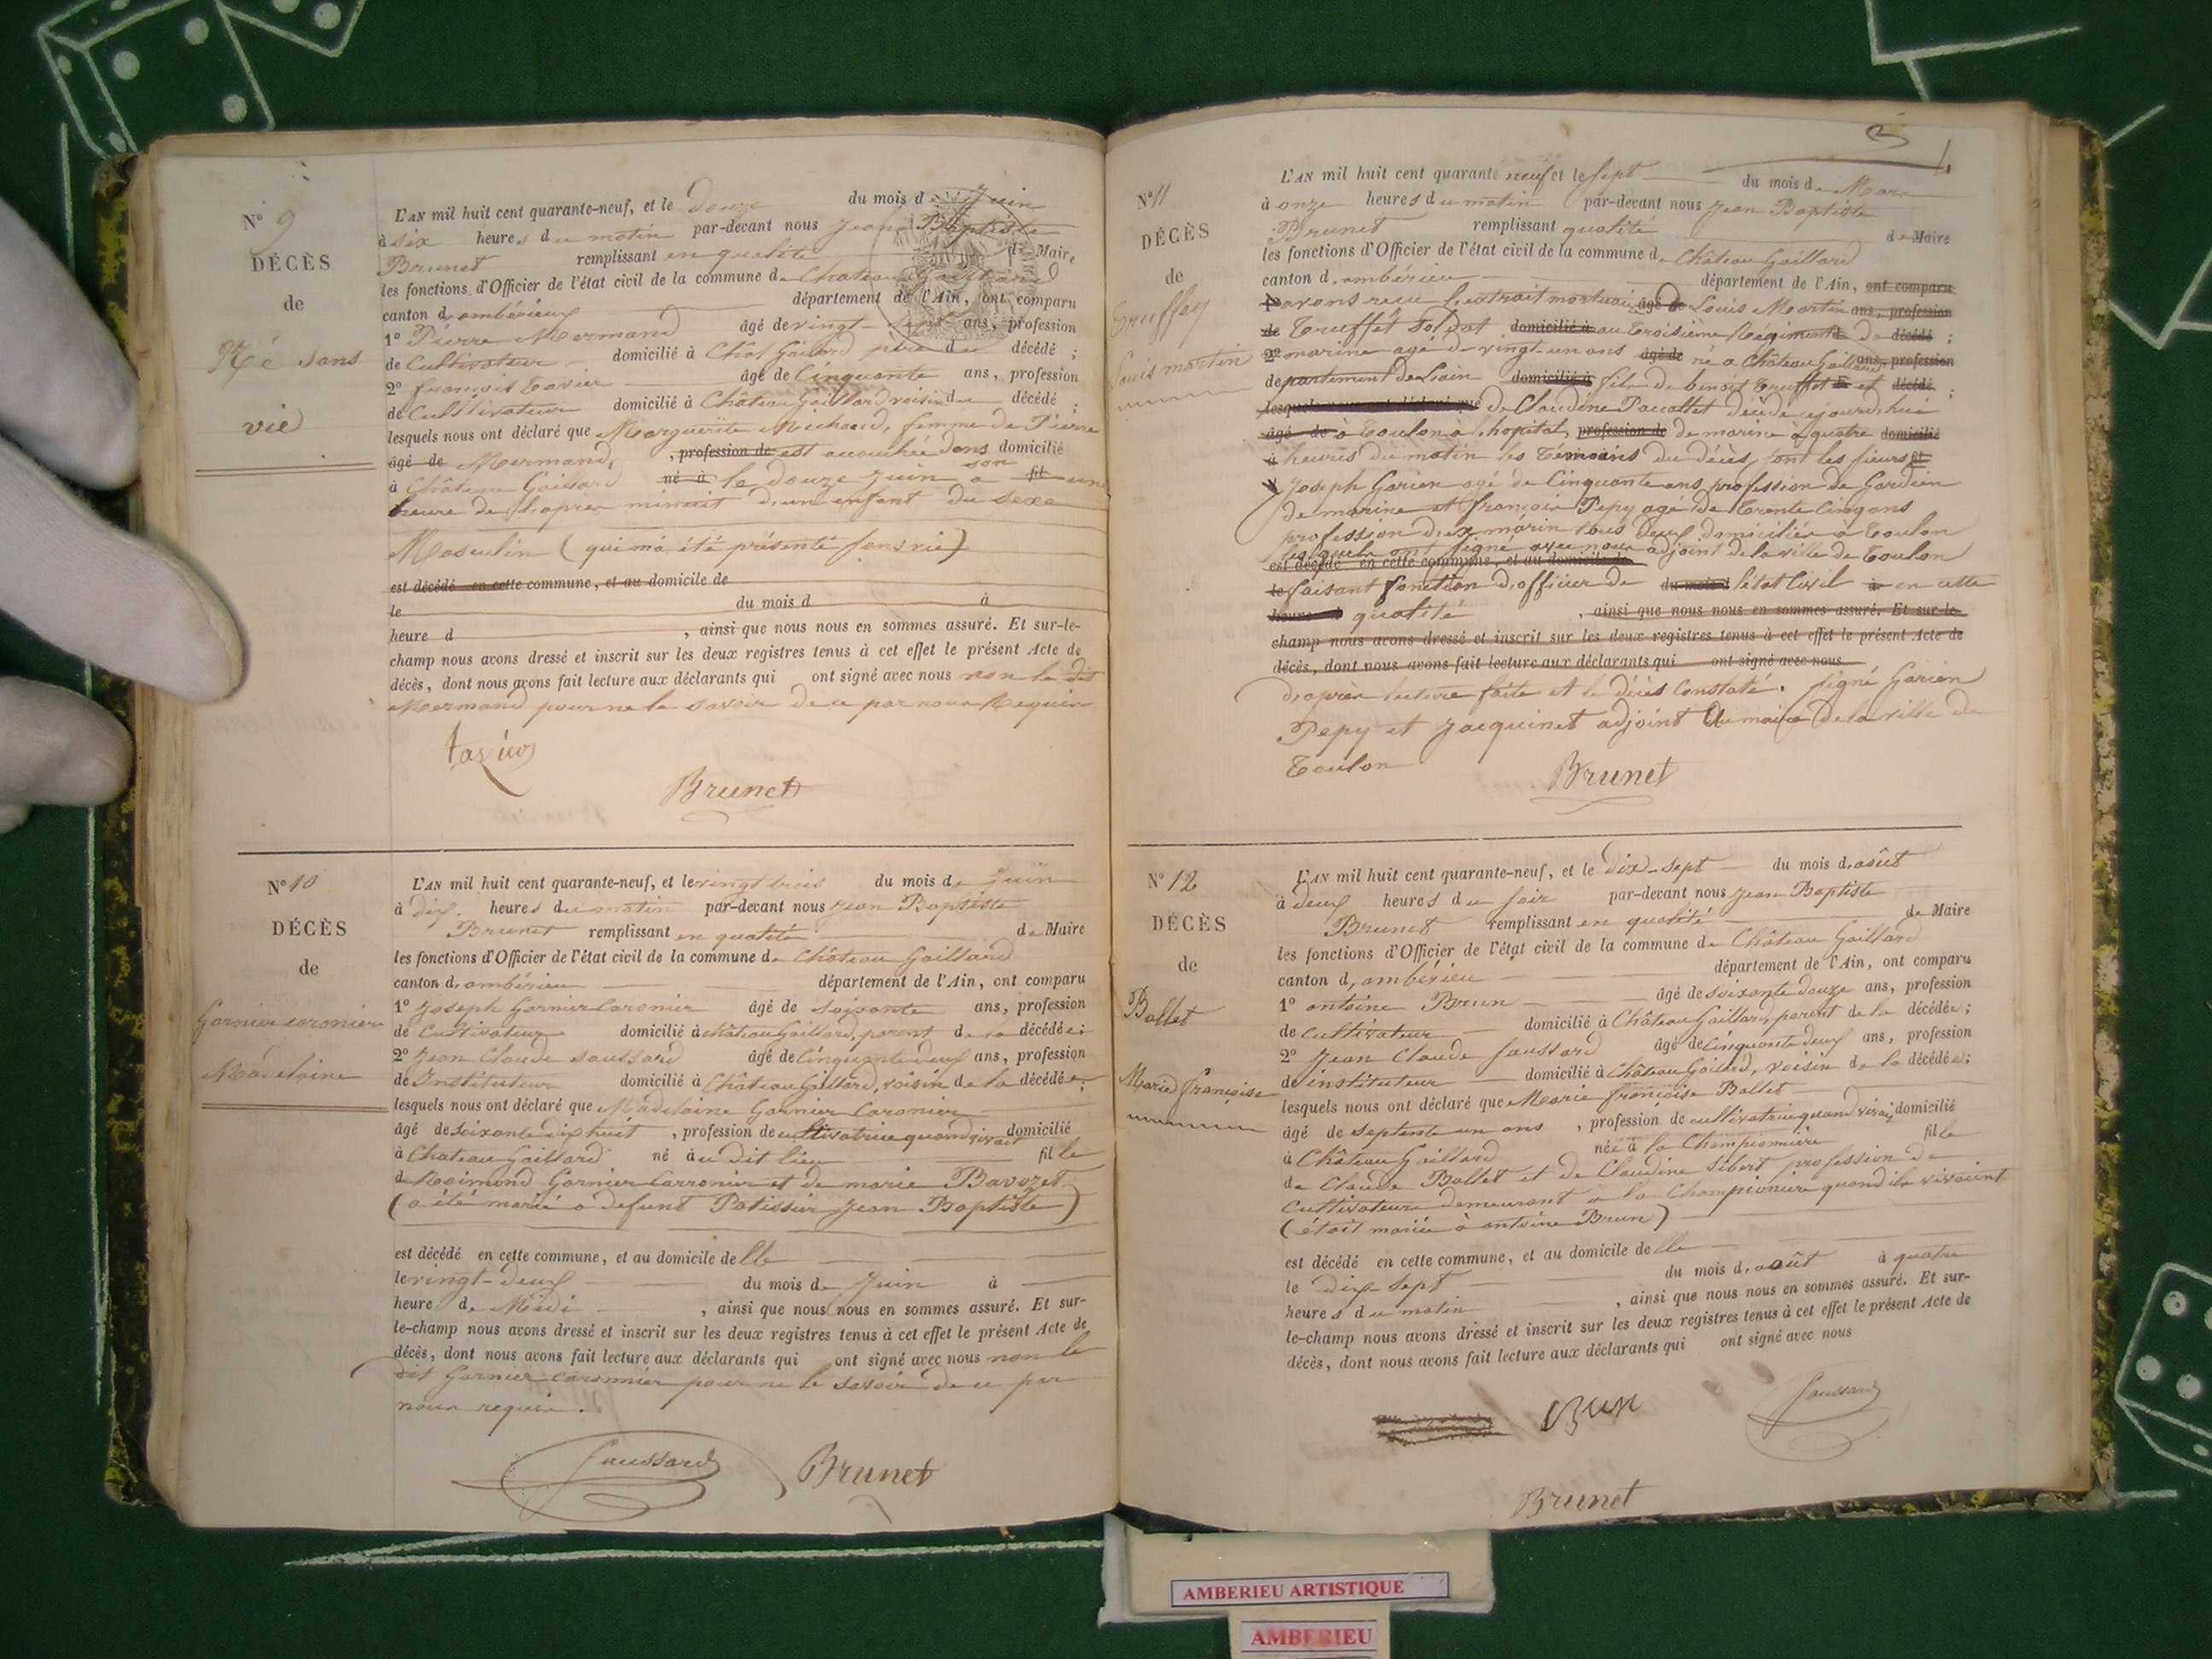 N° 9
DÉCÈS
de
Né sans
vie
L'AN mil huit cent quarante-neuf, et le Douze du mois de Juin
à six heures du matin par-devant nous Jean Baptiste
Brunet remplissant en qualité de Maire
les fonctions d'Officier de l'état civil de la commune de Chateau Gaillard
canton d'ambérieux département de l'Ain, ont comparu
1° Pierre Mermand âgé de vingt-sept ans, profession
de Cultivateur domicilié à Chât Gaillard père du décédé ;
2° françois Tavier âgé de Cinquante ans, profession
de Cultivateur domicilié à Château Gaillard voisin du décédé ;
lesquels nous ont déclaré que Marguerite Michaud, femme de Pierre
âgé de Mermand, , profession de est accouchée dans domicilié
à Château Gaillard né à le douze Juin a son fil une
heure de l'après minuit d'un enfant du sexe
Masculin (qui m'a été présenté sans vie)
est décédé en cette commune, et au domicile de
le du mois d à
heure d , ainsi que nous nous en sommes assuré. Et sur-le-
champ nous avons dressé et inscrit sur les deux registres tenus à cet effet le présent Acte de
décès, dont nous avons fait lecture aux déclarants qui ont signé avec nous non le dit
Mermand pour ne le savoir de ce par nous Requis
Brunet
N° 10
DÉCÈS
de
Garnier caronier
Madelaine
L'AN mil huit cent quarante-neuf, et le vingt trois du mois de Juin
à dix heures du matin par-devant nous Jean Baptiste
Brunet remplissant en qualité de Maire
les fonctions d'Officier de l'état civil de la commune de Château Gaillard
canton d'ambérieu département de l'Ain, ont comparu
1° Joseph Garnier Caronier âgé de soixante ans, profession
de Cultivateur domicilié à château Gaillard, parent de la décédée ;
2° Jean Claude saussard âgé de cinquante deux ans, profession
de Instituteur domicilié à Château Gaillard, voisin de la décédée ;
lesquels nous ont déclaré que Madelaine Garnier Caronier
âgé de soixante dix huit , profession de cultivatrice quand vivait domicilié
à Chateau Gaillard né au dit lieu fille
de Raimond Garnier Carronier et de marie Bavozet
(a été marié a defunt Patissier Jean Baptiste)
est décédé en cette commune, et au domicile delle
le vingt-deux du mois de Juin à
heure de Midi , ainsi que nous nous en sommes assuré. Et sur-
le-champ nous avons dressé et inscrit sur les deux registres tenus à cet effet le présent Acte de
décès, dont nous avons fait lecture aux déclarants qui ont signé avec nous non le
dit Garnier caronnier pour ne le savoir de ce par
nous requis.
Saussard Brunet
N° 11
DÉCÈS
de
Truffey
Louis martin
L'AN mil huit cent quarante neuf et le sept du mois de Mars
à onze heures du matin par-devant nous Jean Baptiste
Brunet remplissant qualité de Maire
les fonctions d'Officier de l'état civil de la commune de Château Gaillard
canton d'ambérieu département de l'Ain, ont comparu
avons reçu l'extrait mortuaire âgé de Louis Martin ans, profession
de Truffet Soldat domicilié à au troisième Regiment de décédé ;
2° marine agé de vingt-un ans âgé de né a Château Gaillard ans, profession
departement de Lain domicilié à fils de benoit Truffet et décédé ;
lesquels nous ont déclaré que de Claudine Pacallet décédé cejourd'hui
âgé de à Toulon à l'hopital, profession de de marine à quatre domicilié
à heures du matin les témoins du décès, sont les sieurs fil
Joseph Garien agé de Cinquante ans profession de Gardien
de marine et françois Pepy agé de trente cinq ans
profession de marin tous deux domiciliés à Toulon
lesquels ont signé avec nous adjoint de la ville de Toulon
est décédé en cette commune, et au domicile de
le faisant fonction d'officier de du mois d l'état Civil à en cette
heure d qualité , ainsi que nous nous en sommes assuré. Et sur-le-
champ nous avons dressé et inscrit sur les deux registres tenus à cet effet le présent Acte de
décès, dont nous avons fait lecture aux déclarants qui ont signé avec nous
d'après lecture faite et le décès Constaté. signé Garien
Pepy et Jacquinet adjoint du maire de la ville de
Toulon
Brunet
N° 12
DÉCÈS
de
Ballet
Marie françoise
L'AN mil huit cent quarante-neuf, et le dix-sept du mois d'août
à deux heures du soir par-devant nous Jean Baptiste
Brunet remplissant en qualité de Maire
les fonctions d'Officier de l'état civil de la commune de Château Gaillard
canton d'ambérieu département de l'Ain, ont comparu
1° antoine Brun âgé de soixante douze ans, profession
de Cultivateur domicilié à Château Gaillard, parent de la décédée ;
2° Jean Claude saussard âgé de cinquante deux ans, profession
de instituteur domicilié à Château Gaillard, voisin de la décédée ;
lesquels nous ont déclaré que Marie françoise Ballet
âgé de septente un ans , profession de cultivatrice quand vivait domicilié
à Château Gaillard née à la Championnière fille
de Claude Ballet et de Claudine Sibert profession de
Cultivateurs demeurant a la Championiere quand ils vivaient
(était mariée à antoine Brun)
est décédé en cette commune, et au domicile delle
le dix-sept du mois d'août à quatre
heures du matin , ainsi que nous nous en sommes assuré. Et sur-
le-champ nous avons dressé et inscrit sur les deux registres tenus à cet effet le présent Acte de
décès, dont nous avons fait lecture aux déclarants qui ont signé avec nous
Brun Saussard
Brunet
AMBERIEU ARTISTIQUE
AMBERIEU